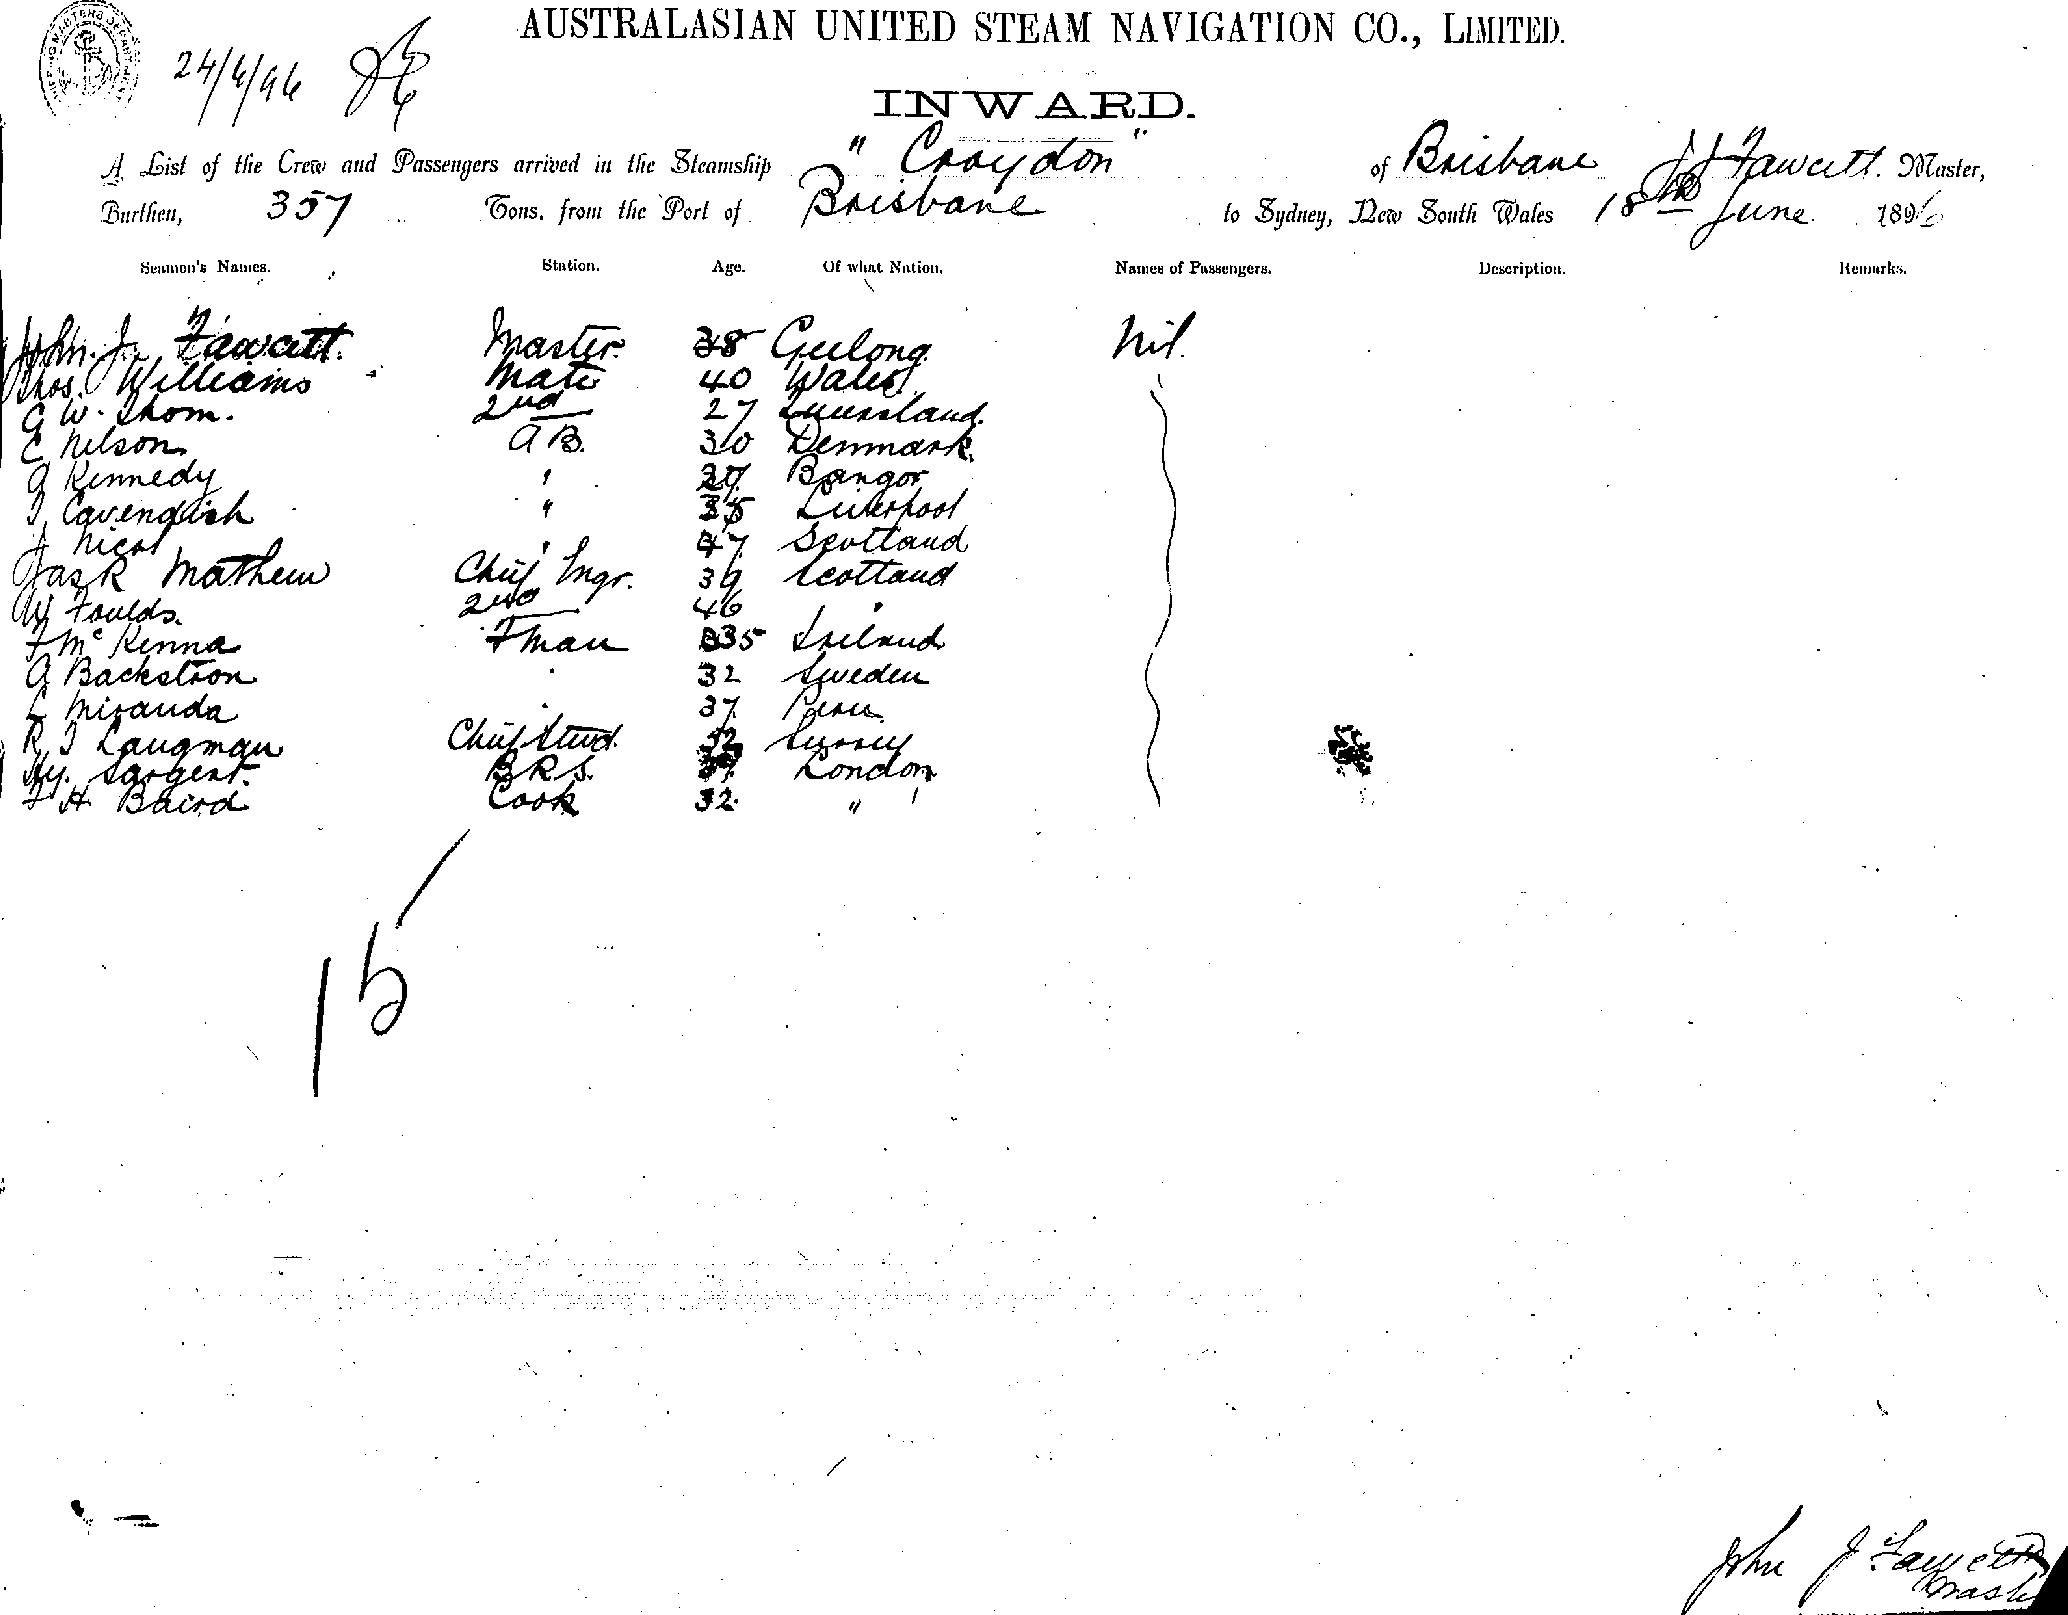 24/6/96
AUSTRALASIAN UNITED STEAM NAVIGATION CO., LIMITED.
INWARD.
A List of the Crew and Passengers arrived in the Steamship "Croydon" of Brisbane J J Fawcett. Master,
Burthen, 357 Tons. from the Port of Brisbane to Sydney, New South Wales 18th June 1896
Seamen's Names. Station. Age. Of what Nation. Names of Passengers. Description. Remarks.
John. J. Fawcett. Master. 38 Geelong. Nil.
Thos. Williams Mate 40 Wales
G W. Thom. 2nd 27 Queensland.
C Nelson A B. 30 Denmark.
Kennedy " Bangor
Cavendish " 35 Liverpool
J Nicol " 47 Scotland
Mathew Chief Engr. 39 Scotland
W Foulds. 2nd 46 "
F McKenna Fman 35 Ireland
A Backstron 32 Sweden
Miranda 37 Peru
R J Langman Chief Stwd. 32 Surrey
Hy. Sargent. B.R.S. London
H Baird Cook 32. "
15
John J Fawcett
Master